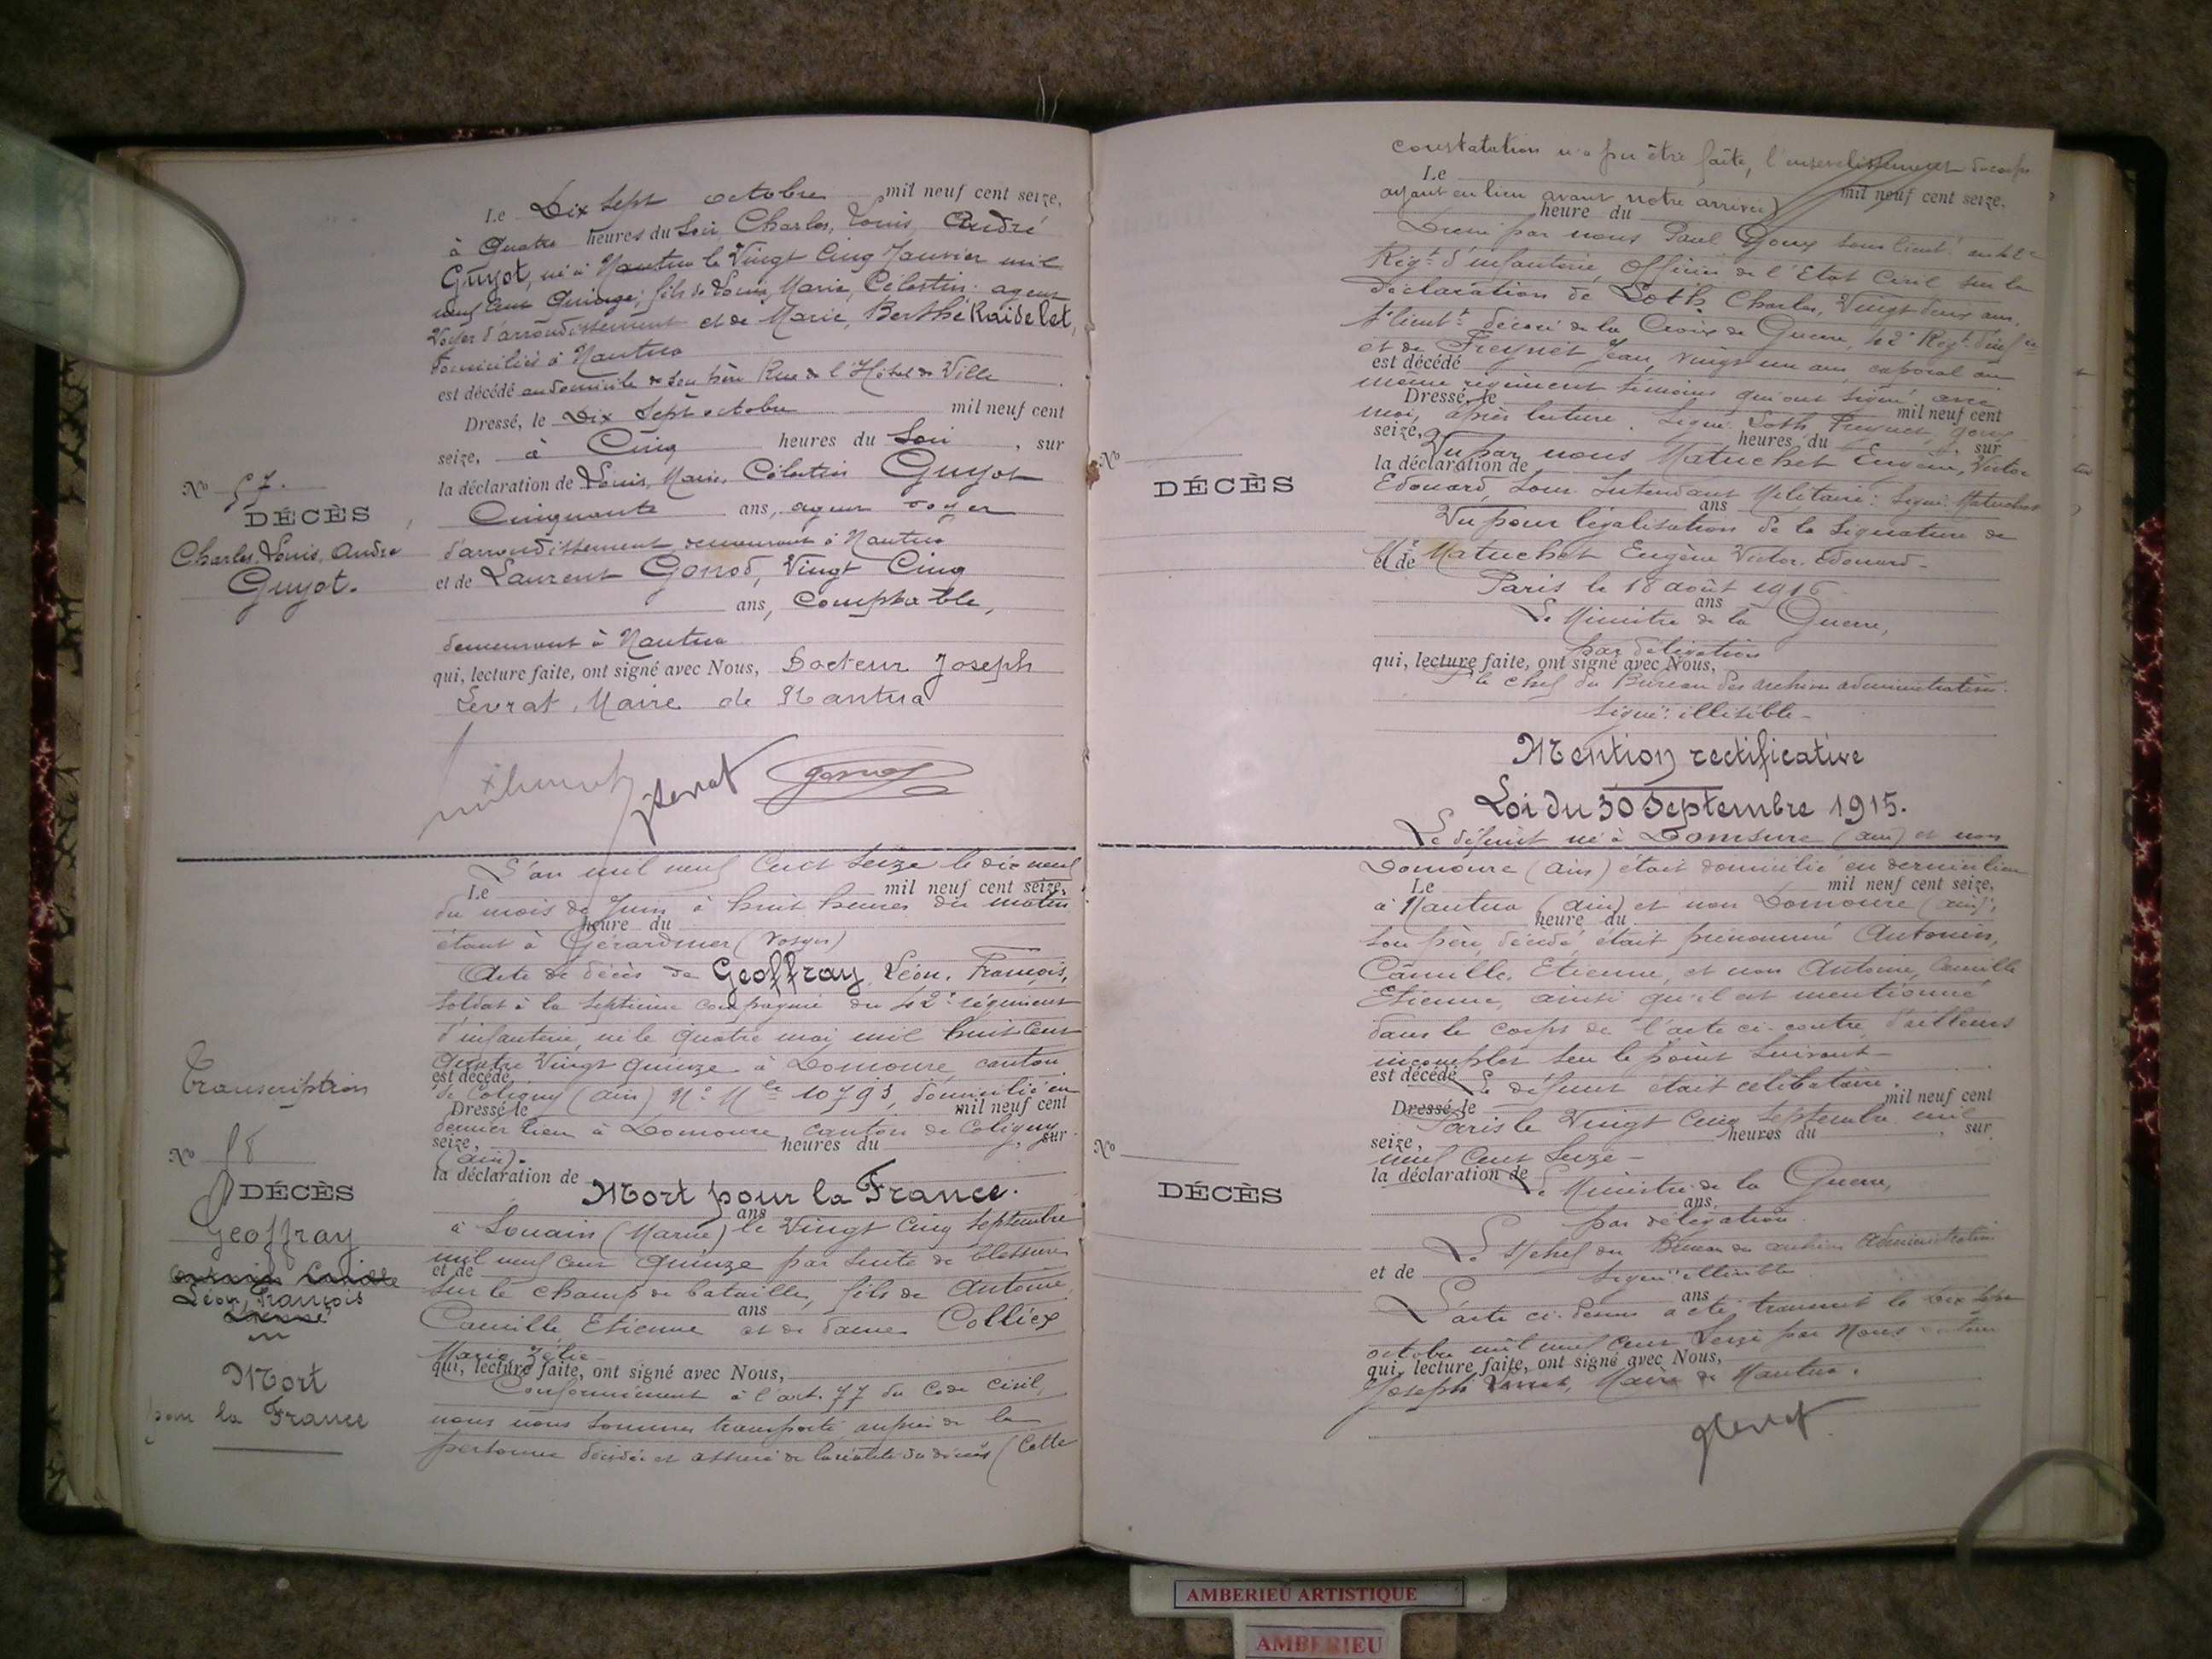 Le Dix sept octobre mil neuf cent seize,
à Quatre heures du Soir Charles, Louis, André
Guyot, né à Nantua le Vingt Cinq Janvier mil
neuf cent Quinze, fils de Louis, Marie, Célestin agent
Voyer d'arrondissement et de Marie, Berthe Raidelet,
domiciliés à Nantua
est décédé au domicile de son père Rue de l'Hôtel de Ville
Dressé, le Dix Sept octobre mil neuf cent
seize, à Cinq heures du Soir, sur
No 57.
DÉCÈS
Charles, Louis, André
Guyot.
la déclaration de Louis, Marie, Célestin Guyot
Cinquante ans, agent voyer
d'arrondissement demeurant à Nantua
et de Laurent Gonod, Vingt Cinq
ans, Comptable,
demeurant à Nantua
qui, lecture faite, ont signé avec Nous, Docteur Joseph
Levrat, Maire de Nantua
JLevrat Gonod
L'an mil neuf Cent Seize le dix neuf
Le mil neuf cent seize,
du mois de Juin à huit heures du matin
heure du
étant à Gérardmer (Vosges)
Acte de décès de Geoffray, Léon, François,
soldat à la septième compagnie du 42e régiment
d'infanterie, né le quatre mai mil huit Cent
Quatre Vingt quinze à Domoure canton
est décédé
de Coligny (Ain) No Mle 10793, domicilié en
Dressé le mil neuf cent
dernier lieu à Domoure canton de Coligny
seize, heures du , sur
(Ain).
la déclaration de
Mort pour la France.
ans
à Souain (Marne) le Vingt Cinq Septembre
mil neuf cent Quinze par suite de blessures
et de
sur le champ de bataille, fils de Antoine
ans
Camille Etienne et de dame Colliex
Marie Zélie
qui, lecture faite, ont signé avec Nous,
Conformément à l'art. 77 du Code Civil,
nous nous sommes transporté auprès de la
personne décédée et assuré de la réalité du décès (Cette
Transcription
No 58
DÉCÈS
Geoffray
Léon, François
Mort
pour la France
constatation n'a pu être faite, l'ensevelissement du corps
Le mil neuf cent seize,
ayant eu lieu avant notre arrivée)
heure du
Dressé par nous Paul Goux sous lieut au 42e
Régt d'infanterie, Officier de l'Etat Civil sur la
déclaration de Loth Charles, Vingt deux ans,
s/lieutt décoré de la Croix de Guerre, 42e Régt d'infie
et de Freynet Jean, vingt un ans, caporal au
est décédé
même régiment témoins qui ont signé avec
Dressé, le mil neuf cent
moi, après lecture. Signé: Loth, Freynet, Goux
seize, heures du , sur
Vu par nous Matuchet Eugène, Victor
la déclaration de
Edouard, Sous-Intendant Militaire: Signé: Matuchet
ans
Vu pour légalisation de la signature de
Mr Matuchet Eugène Victor Edouard-
et de
Paris le 18 août 1916
ans
Le Ministre de la Guerre,
par délégation
qui, lecture faite, ont signé avec Nous,
le chef du Bureau des archives administratives.
signé: illisible-
No
DÉCÈS
Mention rectificative
Loi du 30 Septembre 1915.
Le défunt né à Domsure (Ain) et non
Domoure (Ain) était domicilié en dernier lieu
Le mil neuf cent seize,
à Nantua (Ain) et non Domoure (Ain),
heure du
son père, décédé, était prénommé Antonin,
Camille, Etienne, et non Antoine, Camille
Etienne, ainsi qu'il est mentionné
dans le corps de l'acte ci-contre, d'ailleurs
incomplet sur le point suivant-
est décédé
Le défunt était célibataire.
Dressé, le mil neuf cent
Paris le Vingt Cinq Septembre mil
seize, heures du , sur
neuf Cent Seize-
la déclaration de
Le Ministre de la Guerre,
ans
par délégation
Le chef du Bureau des archives administratives
et de
signé: illisible
ans
L'acte ci-dessus a été transcrit le dix sept
octobre mil neuf Cent Seize par Nous
qui, lecture faite, ont signé avec Nous,
Joseph Levrat, Maire de Nantua.
JLevrat
No
DÉCÈS
AMBERIEU ARTISTIQUE
AMBERIEU